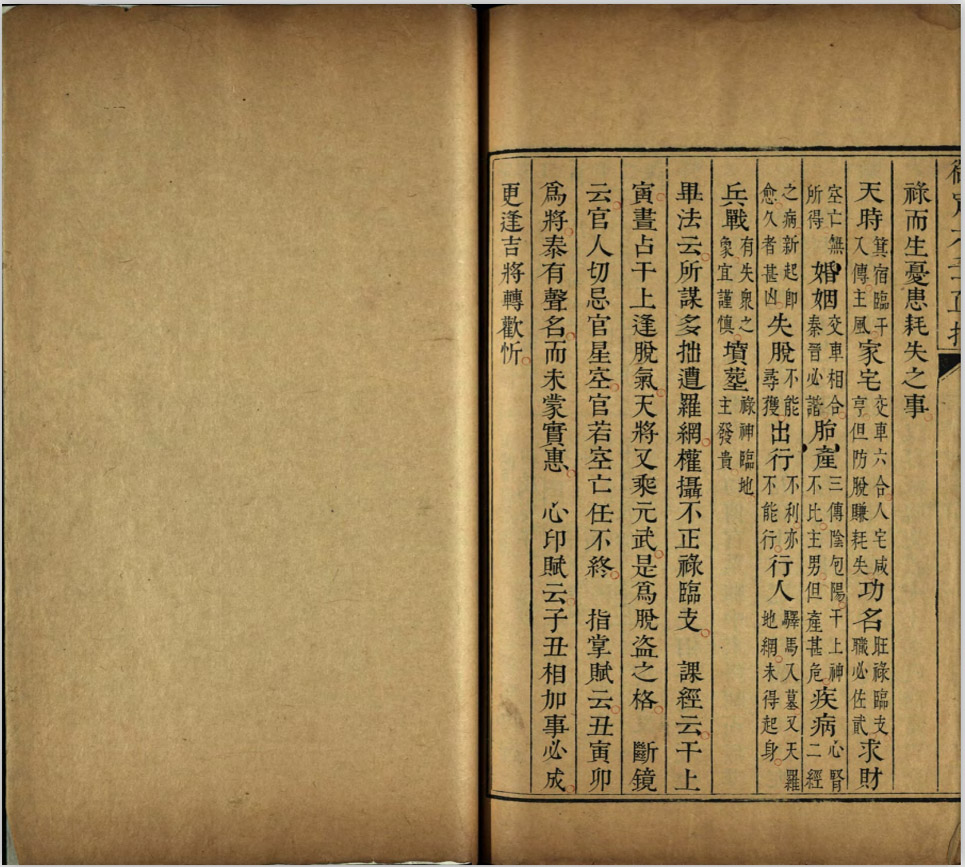 御定六壬直指
祿而生憂患耗失之事
天時箕宿臨干入傳主風家宅交車六合人宅咸亨但防脫賺耗失功名旺祿臨支職必佐貳求財
空亡無所得婚姻交車相合秦晉必諧胎產三傳陰包陽干上神不比主男但產甚危疾病心腎二經
之病新起即愈久者甚凶失脫不能尋獲出行不利亦不能行行人驛馬入墓又天羅地網未得起身
兵戰有失衆之象宜謹慎墳墓祿神臨地主發貴
畢法云所謀多拙遭羅網權攝不正祿臨支　課經云干上
寅晝占干上逢脫氣天將又乘元武是爲脫盜之格　斷鏡
云官人切忌官星空官若空亡任不終　指掌賦云丑寅卯
爲將泰有聲名而未蒙實惠　心印賦云子丑相加事必成
更逢吉將轉歡忻